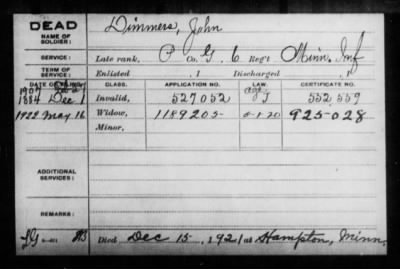 DEAD Dimmers, John
NAME OF
SOLDIER:
SERVICE: Late rank, P Co. G, 6 Reg't Minn. Inf
TERM OF
SERVICE: Enlisted , 1 Discharged , 1
DATE OF FILING. CLASS. APPLICATION NO. LAW. CERTIFICATE NO.
1907
1884 Dec 1 Invalid, 527052 age J 552,559
1922 May 16 Widow, 1189205 5-1-20 925-028
Minor,
ADDITIONAL
SERVICES:
REMARKS:
Died Dec 15, 1921 at Hampton, Minn.